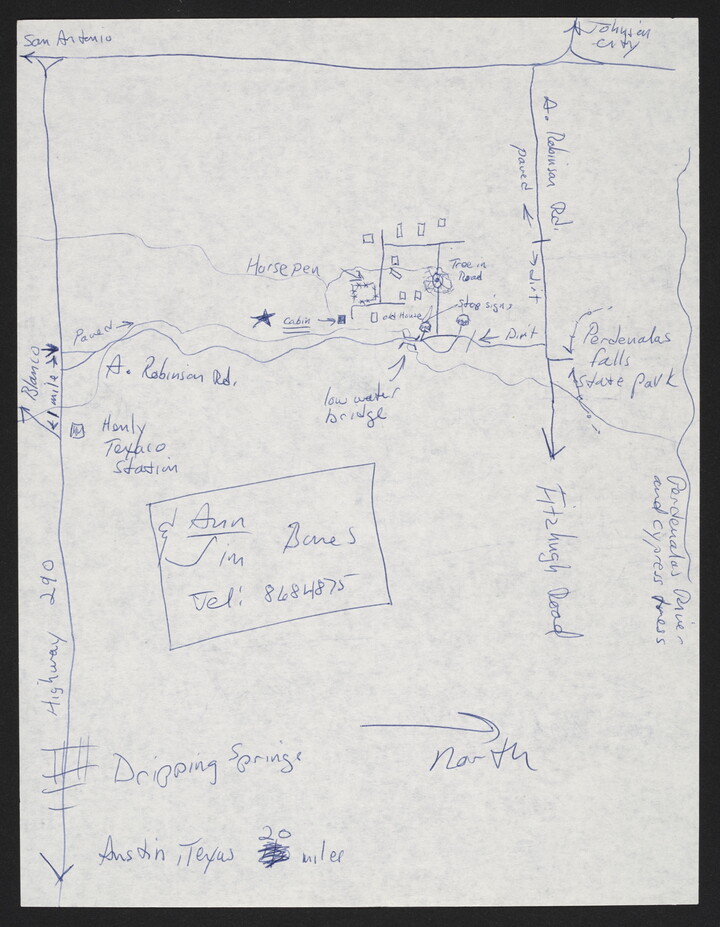 San Antonio
Johnson
City
A. Robinson Rd.
paved
dirt
Horse pen
Tree in
Road
Stop signs
Cabin
old House
Dirt
Paved
A. Robinson Rd.
low water
bridge
Perdenalas
falls
State park
Blanco
1 mile
Henly
Texaco
Station
Ann
& Jim
Bones
Tel: 8684875
Fitzhugh Road
Perdenalas River
and cypress trees
Highway 290
north
Dripping Springs
Austin, Texas 20 miles